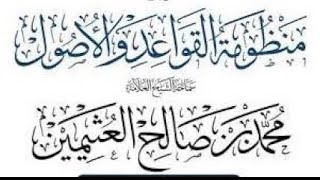 منظومة القواعد والأصول
سماحة الشيخ العلامة
محمد بن صالح العثيمين